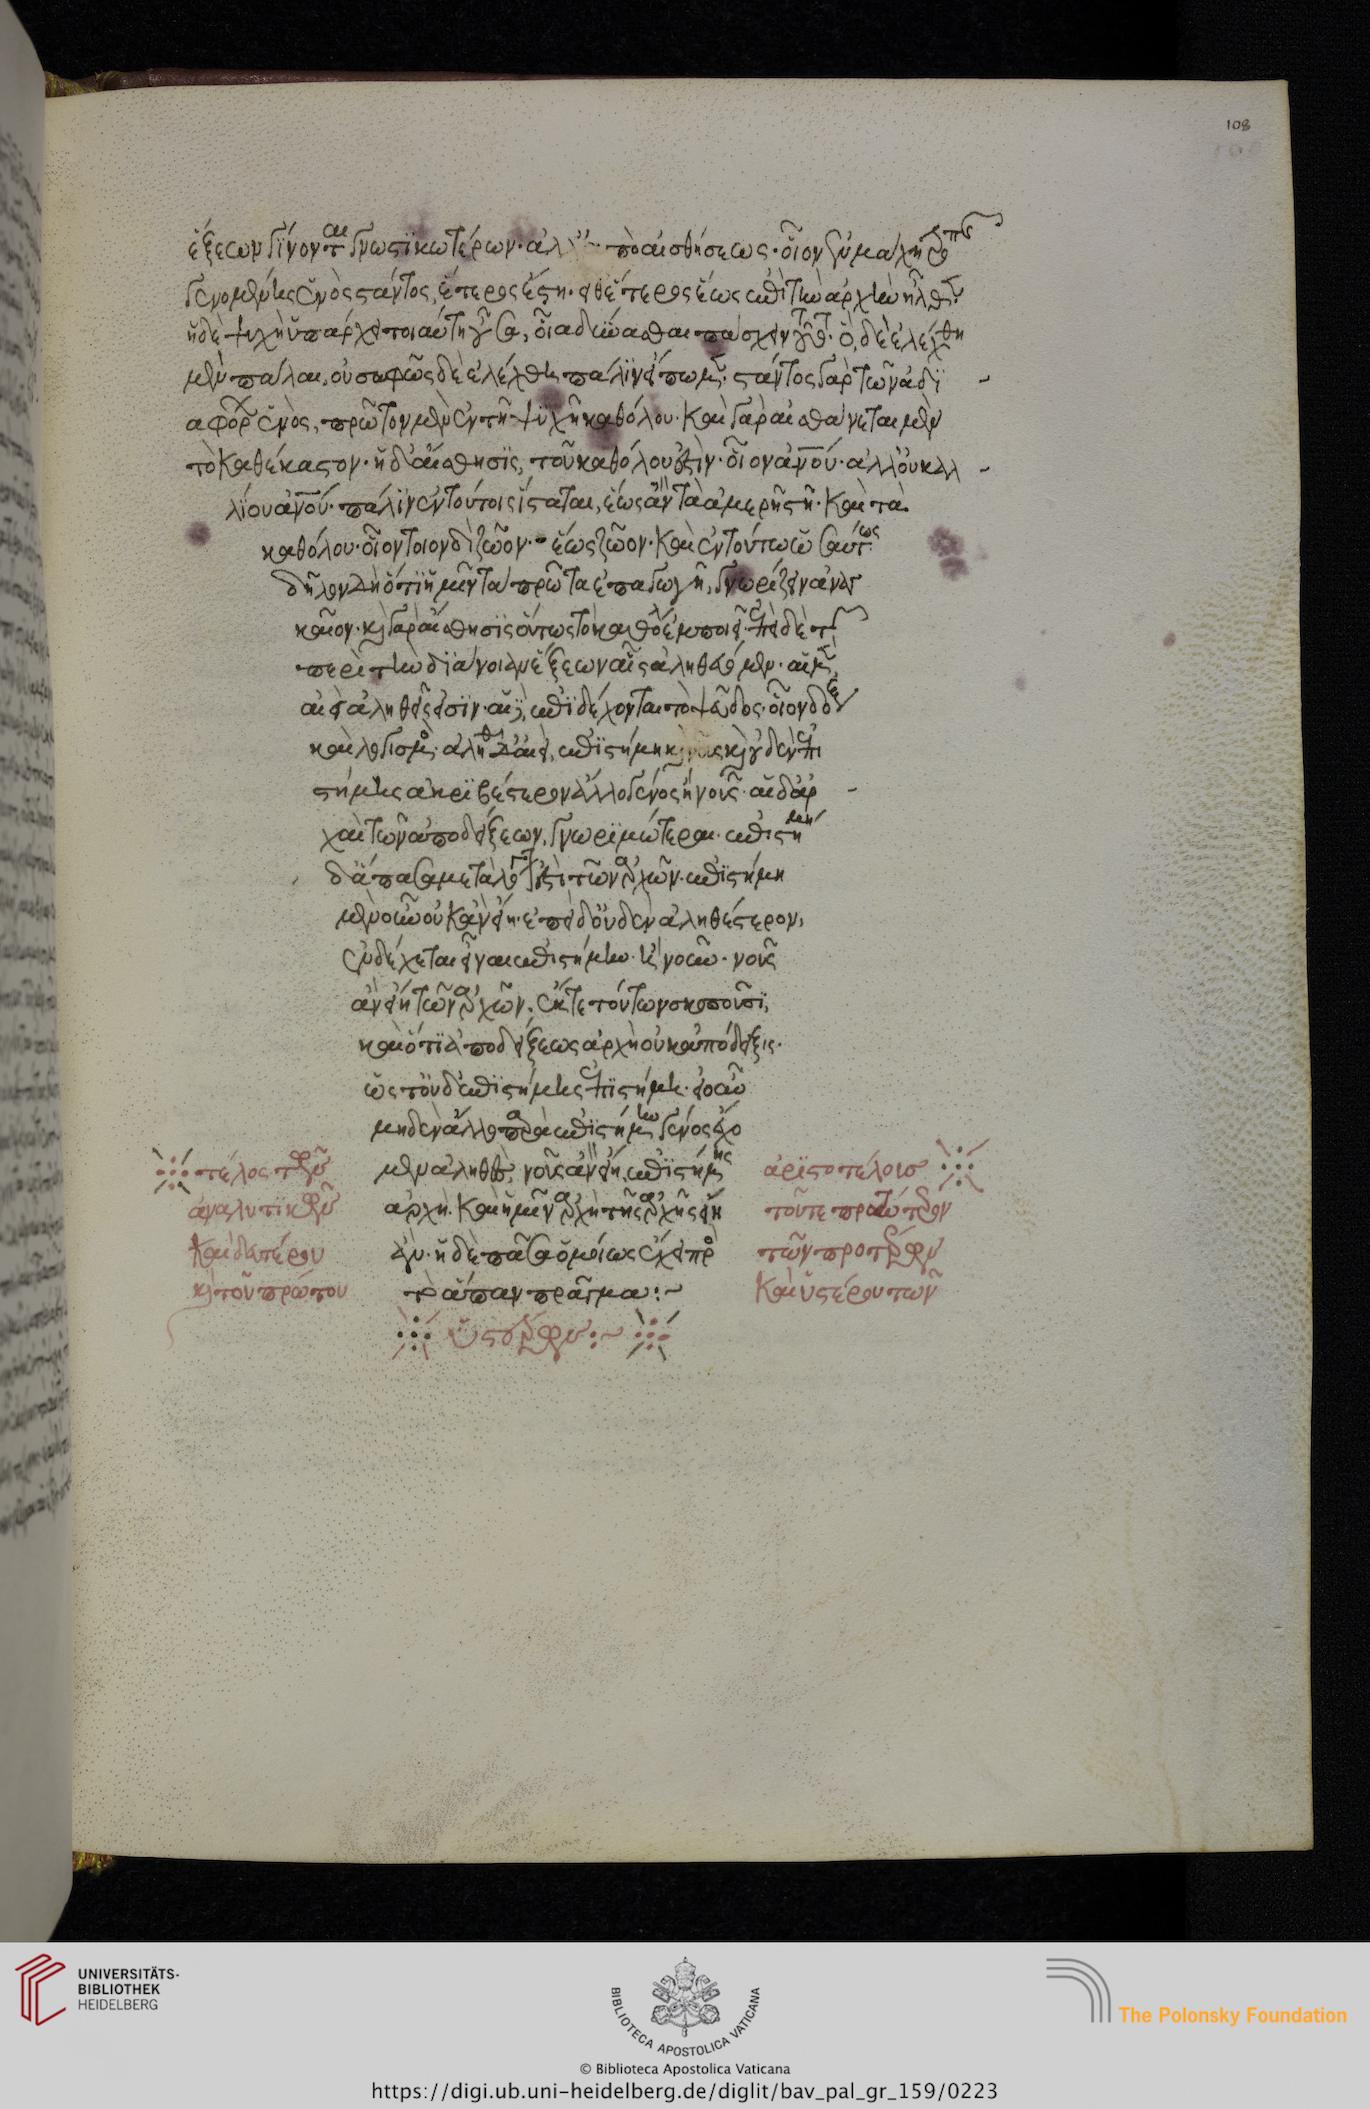 108
ἕξεων γίνονται γνωστικωτέρων· ἀλλ' ἀπὸ αἰσθήσεως· οἷον ἐν μάχῃ τροπῆς
γενομένης ἑνὸς στάντος, ἕτερος ἔστη· εἶθ' ἕτερος ἕως ἐπὶ τὴν ἀρχὴν ἦλθεν·
ἡ δὲ ψυχὴ ὑπάρχει τοιαύτη οὖσα, οἵα δύνασθαι πάσχειν τοῦτο· ὃ δὲ ἐλέχθη
μὲν πάλαι, οὐ σαφῶς δὲ ἐλέχθη πάλιν εἴπωμεν· στάντος γὰρ τῶν ἀδι
αφόρων ἑνὸς, πρῶτον μὲν ἐν τῇ ψυχῇ καθόλου· καὶ γὰρ αἰσθάνεται μὲν
τὸ καθέκαστον· ἡ δ' αἴσθησις, τοῦ καθόλου ἐστὶν· οἷον ἀνου· ἀλλ' οὐ καλ
λίου ἀνου· πάλιν ἐν τούτοις ἵσταται, ἕως ἂν τὰ ἀμερῆ στῇ· καὶ τὰ
καθόλου· οἷον τοιονδὶ ζῶον· ἕως ζῶον· καὶ ἐν τούτω ὡσαύτως
δῆλον δὴ ὅτι ἡμῖν τὰ πρῶτα ἐπαγωγῇ, γνωρίζειν ἀναγ
καῖον· καὶ γὰρ αἴσθησις οὕτως τὸ καθόλου ἐμποιεῖ· ἐπεὶ δὲ τῶν
περὶ τὴν διάνοιαν ἕξεων αἷς ἀληθεύομεν· αἱ μὲν
αἰεὶ ἀληθεῖς εἰσιν· αἱ δὲ, ἐπιδέχονται τὸ ψεῦδος· οἷον δόξα
καὶ λογισμός· ἀληθῆ δ' ἀεὶ, ἐπιστήμη καὶ νοῦς καὶ οὐδὲν ἐπι
στήμης ἀκριβέστερον ἄλλο γένος ἢ νοῦς· αἱ δ' ἀρ
χαὶ τῶν ἀποδείξεων, γνωριμώτεραι· ἐπιστήμη
δ' ἅπασα μετὰ λόγου ἐστὶ τῶν ἀρχῶν· ἐπιστήμη
μὲν οὖν οὐκ ἂν εἴη· ἐπεὶ δ' οὐδὲν ἀληθέστερον,
ἐνδέχεται εἶναι ἐπιστήμην· ἢ νοῦν· νοῦς
ἂν εἴη τῶν ἀρχῶν· ἔκ τε τούτων σκοποῦσι,
καὶ ὅτι ἀποδείξεως ἀρχὴ οὐκ ἀπόδειξις·
ὥστ' οὐδ' ἐπιστήμης ἐπιστήμη· εἰ οὖν
μηδὲν ἄλλο παρὰ ἐπιστήμην γένος ἔχο
μεν ἀληθὲς, νοῦς ἂν εἴη ἐπιστήμης
ἀρχή· καὶ ἡ μὲν ἀρχὴ τῆς ἀρχῆς εἴη
ἄν· ἡ δὲ πᾶσα ὁμοίως ἔχει πρὸς
τὸ ἅπαν πρᾶγμα:~
τέλος τῶν
ἀναλυτικῶν
καὶ δευτέρου
καὶ τοῦ πρώτου
ἀριστοτέλους
τοῦ τε πρώτου
τῶν προτέρων
καὶ ὑστέρου τῶν
ὑστέρων:~
UNIVERSITÄTS-
BIBLIOTHEK
HEIDELBERG
BIBLIOTECA APOSTOLICA VATICANA
The Polonsky Foundation
© Biblioteca Apostolica Vaticana
https://digi.ub.uni-heidelberg.de/diglit/bav_pal_gr_159/0223